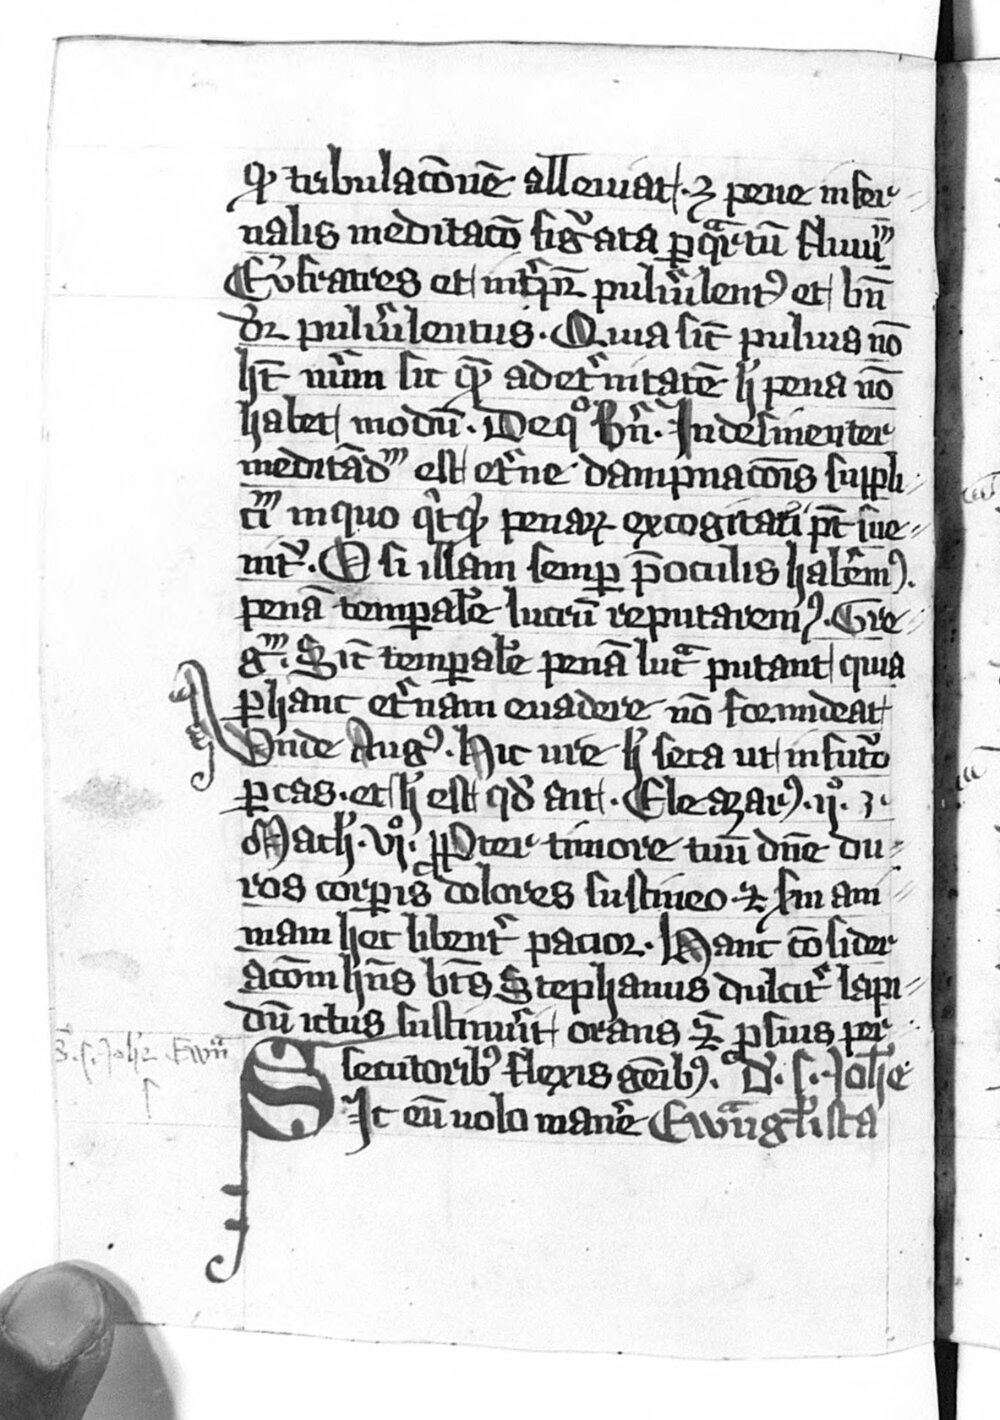 qͥ tribulacōnē alleuiat. ⁊ pene infer
nalis meditacō figͣata p qͣrtū fluuiᷤ
Eufrates et intͥpͥt̄ puluͥulentꝰ et bn̄
dr̄ puluͥulentus. Quia sic̄ puluis nō
hꝫ nūm sit qͣ ad etͥnitatē hͥ pena nō
habet modū. De qͦ Bn̄. Indesinenter
meditād᷒ est etͥne dampnacōis suppli
ciᷤ in quo qͥcqͥd penaꝝ excogitari pt̄ īue
nitͥ. O si illam semp p̄ oculis habēmꝰ.
penā tempalē lucrū reputaremꝰ. Gre
gᷤ. Sic̄ tempalē penā lucͣ putant quia
p hanc etͥnam euadere nō formideat
Vnde Augꝰ. Hic ure hͥ seca ut in futͦo
pcas. et hͥ est qd̄ ait. Eleazarꝰ. ijͦ.
Mach. vjͦ. ꝓpter timore tuū dn̄e du
ros corpis dolores sustineo. ⁊ sm̄ ani
mam hec libentͥ pacior. Hanc cōsider
acōm hn̄s bt̄s Stephanus dulcitͥ lapi
dū ictus sustinuit orans ⁊ p suis per
secutoribꝰ flexis genibꝰ. D. s. Johē
Sic eū uolo manēe Ewāngl̄ista
D. s. Johe Ewn̄